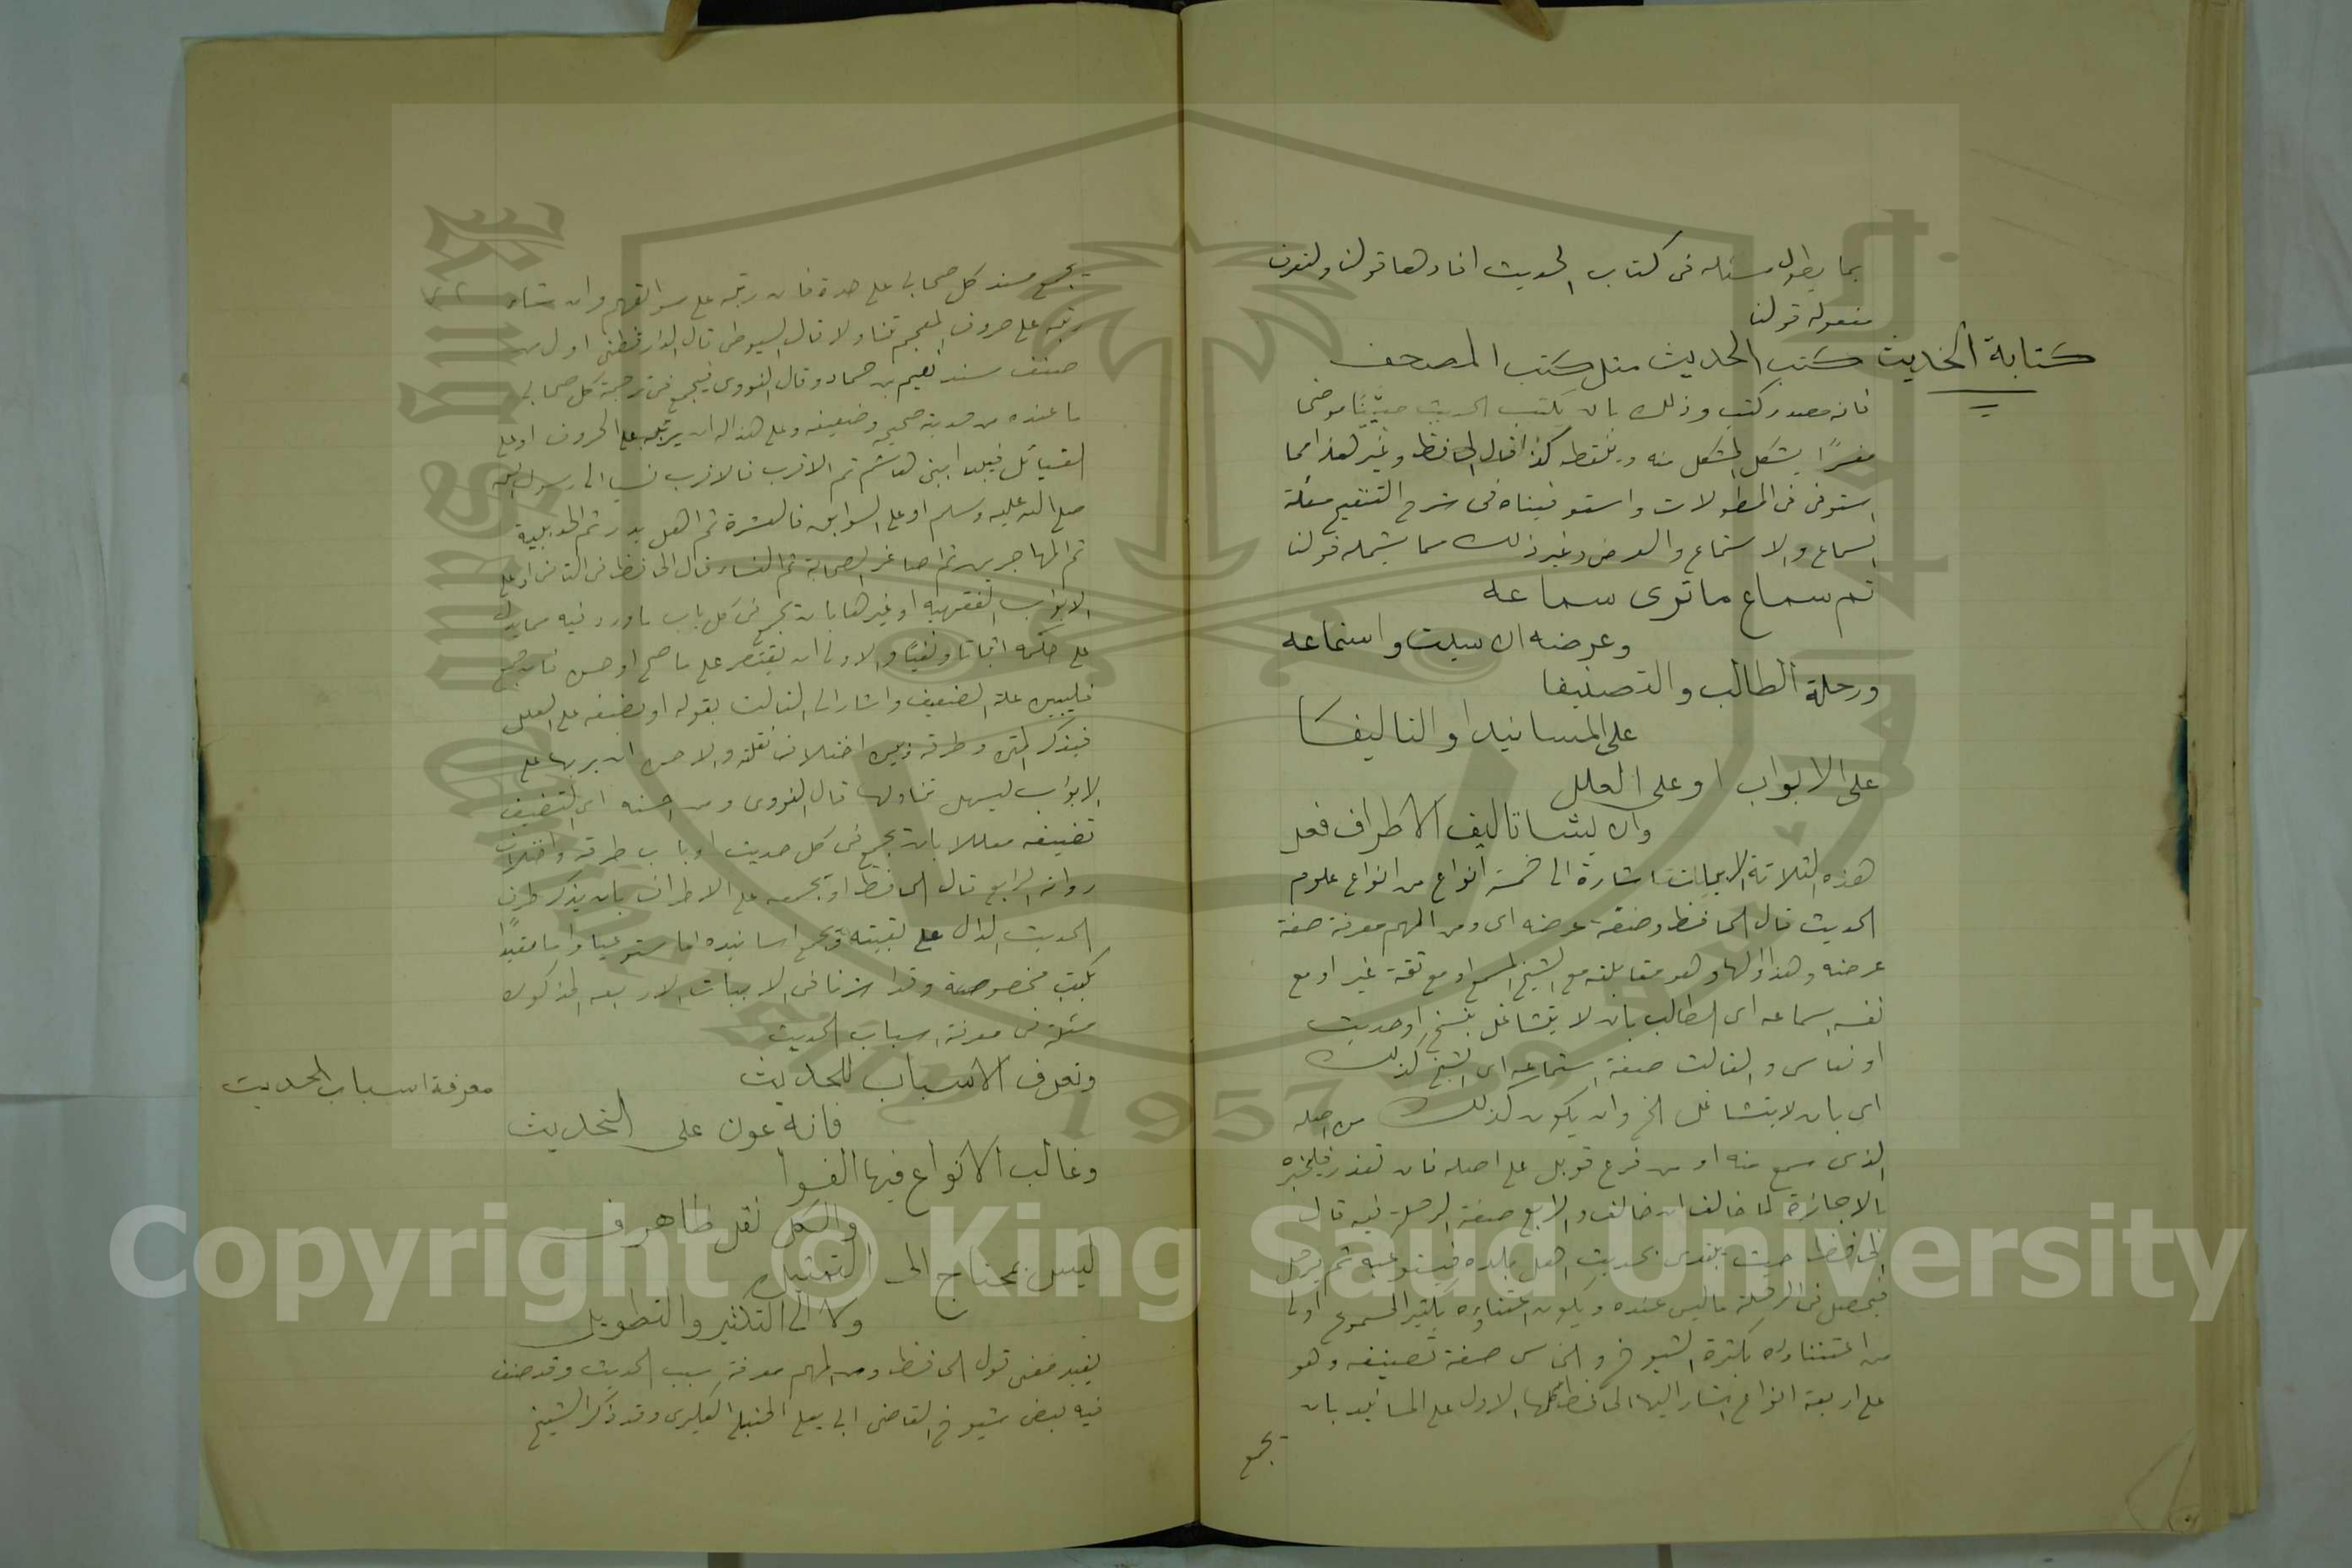 بما يطول مسئله فى كتاب الحديث افادها قولنا ولتعرف
مفعوله قولنا
كتابة الحديث
كتب الحديث مثل كتب المصحف
فانه مصدر كتب وذلك بان يكتب الحديث مبيّنًا موضحا
مفسرًا يشكل المشكل منه وينقطه كذا قال الحافظ وغير هذا مما
استوفى فى المطولات واستوفيناه فى شرح التنقيح مسئلة
السماع والاستماع والعرض وغير ذلك مما يشمله قولنا
ثم سماع ما ترى سماعه
وعرضه ان سيلت واستماعه
ورحلة الطالب والتصنيفا
على المسانيد او التاليفا
على الابواب او على العلل
وان يشا تاليف الاطراف فعل
هذه الثلاثة الابيات اشارة الى خمسة انواع من انواع علوم
الحديث قال الحافظ وصفة عرضه اى ومن المهم معرفة صفة
عرضه وهذا اولها وهو مقابلته مع الشيخ المسمع او مع ثقة غيره او مع
نفسه سماعه اى الطالب بان لا يتشاغل بنسخ او حديث
او نعاس والثالث صفة استماعه اى الشيخ كذلك
اى بان لا يتشاغل الخ وان يكون كذلك من اصله
الذى سمع منه او من فرع قوبل على اصله فان تعذر فليجبره
بالاجازة لما خالف ان خالف والرابع صفة الرحلة فيه قال
الحافظ حيث يبتدى بحديث اهل بلده فيستوعبه ثم يرحل
فيحصل فى الرحلة ما ليس عنده ويكون اعتناؤه بتكثير المسموع اولى
من اعتنائه بكثرة الشيوخ والخامس صفة تصنيفه وهو
على اربعة انواع اشار اليها الحافظ كلها الاول على المسانيد بان
يجمع
يجمع مسند كل صحابى على حدة فان رتبه على سوابقهم وان شاء
رتبه على حروف المعجم تناولا قال السيوطى قال الدارقطنى اول من
صنف مسند نعيم بن حماد وقال النووى فيجمع فى ترجمة كل صحابى
ما عنده من حديثه صحيحه وضعيفه وعلى هذا له ان يرتبه على الحروف او على
القبائل فيبدا ببنى هاشم ثم الاقرب فالاقرب نسبا الى رسول الله
صلى الله عليه وسلم او على السوابق فالعشرة ثم اهل بدر ثم الحديبية
ثم المهاجرين ثم اصاغر الصحابة ثم النساء قال الحافظ فى الثانى او على
الابواب الفقهيه او غيرها بان يجمع فى كل باب ما ورد فيه مما يدل
على حكمه اثباتا ونفيًا والاولى ان يقتصر على ما صح او حسن فان جمع
فليبين علة الضعيف واشار الى الثالث بقوله او يصنفه على العلل
فيذكر المتن وطرقه وبين اختلاف نقلته والاحسن ان يرتبها على
الابواب ليسهل تناولها قال النووى ومن احسنه اى التصنيف
تصنيفه معللا بان يجمع فى كل حديث او باب طرقه واختلاف
رواته الرابع قال الحافظ او يجمعه على الاطراف بان يذكر طرف
الحديث الدال على بقيته ويجمع اسانيده اما مستوعبا واما مقيدًا
بكتب مخصوصة وقد اشرنا فى الابيات الاربعه المذكورة
مسئلة فى معرفة اسباب الحديث
معرفة اسباب الحديث
وتعرف الاسباب للحديث
فانه عون على التحديث
وغالب الانواع فيها الفوا
والكل نقل ظاهر
ليس بمحتاج الى التمثيل
ولا الى التكثير والتطويل
يفيد معنى قول الحافظ ومن المهم معرفة سبب الحديث وقد صنف
فيه بعض شيوخ القاضى ابى يعلى الحنبلى العكبرى وقد ذكر الشيخ
Copyright © King Saud University
1957